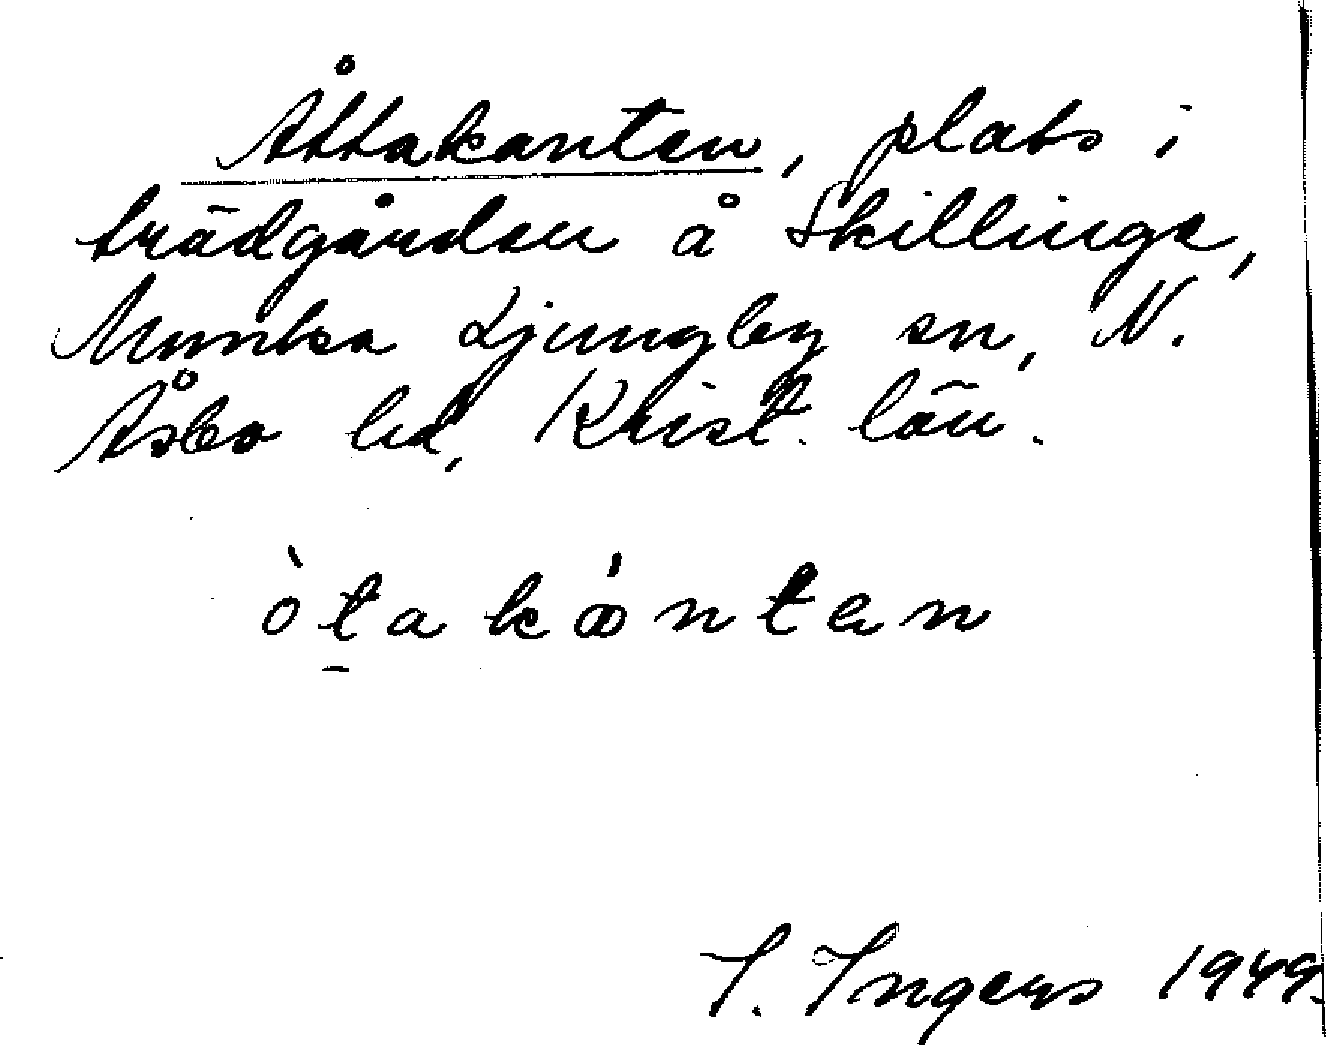 Åttakanten, plats i
trädgården å Skillinge,
Munka Ljungby sn, N.
Åsbo hd, Krist. län.
òtakánten
I. Ingers 1949.